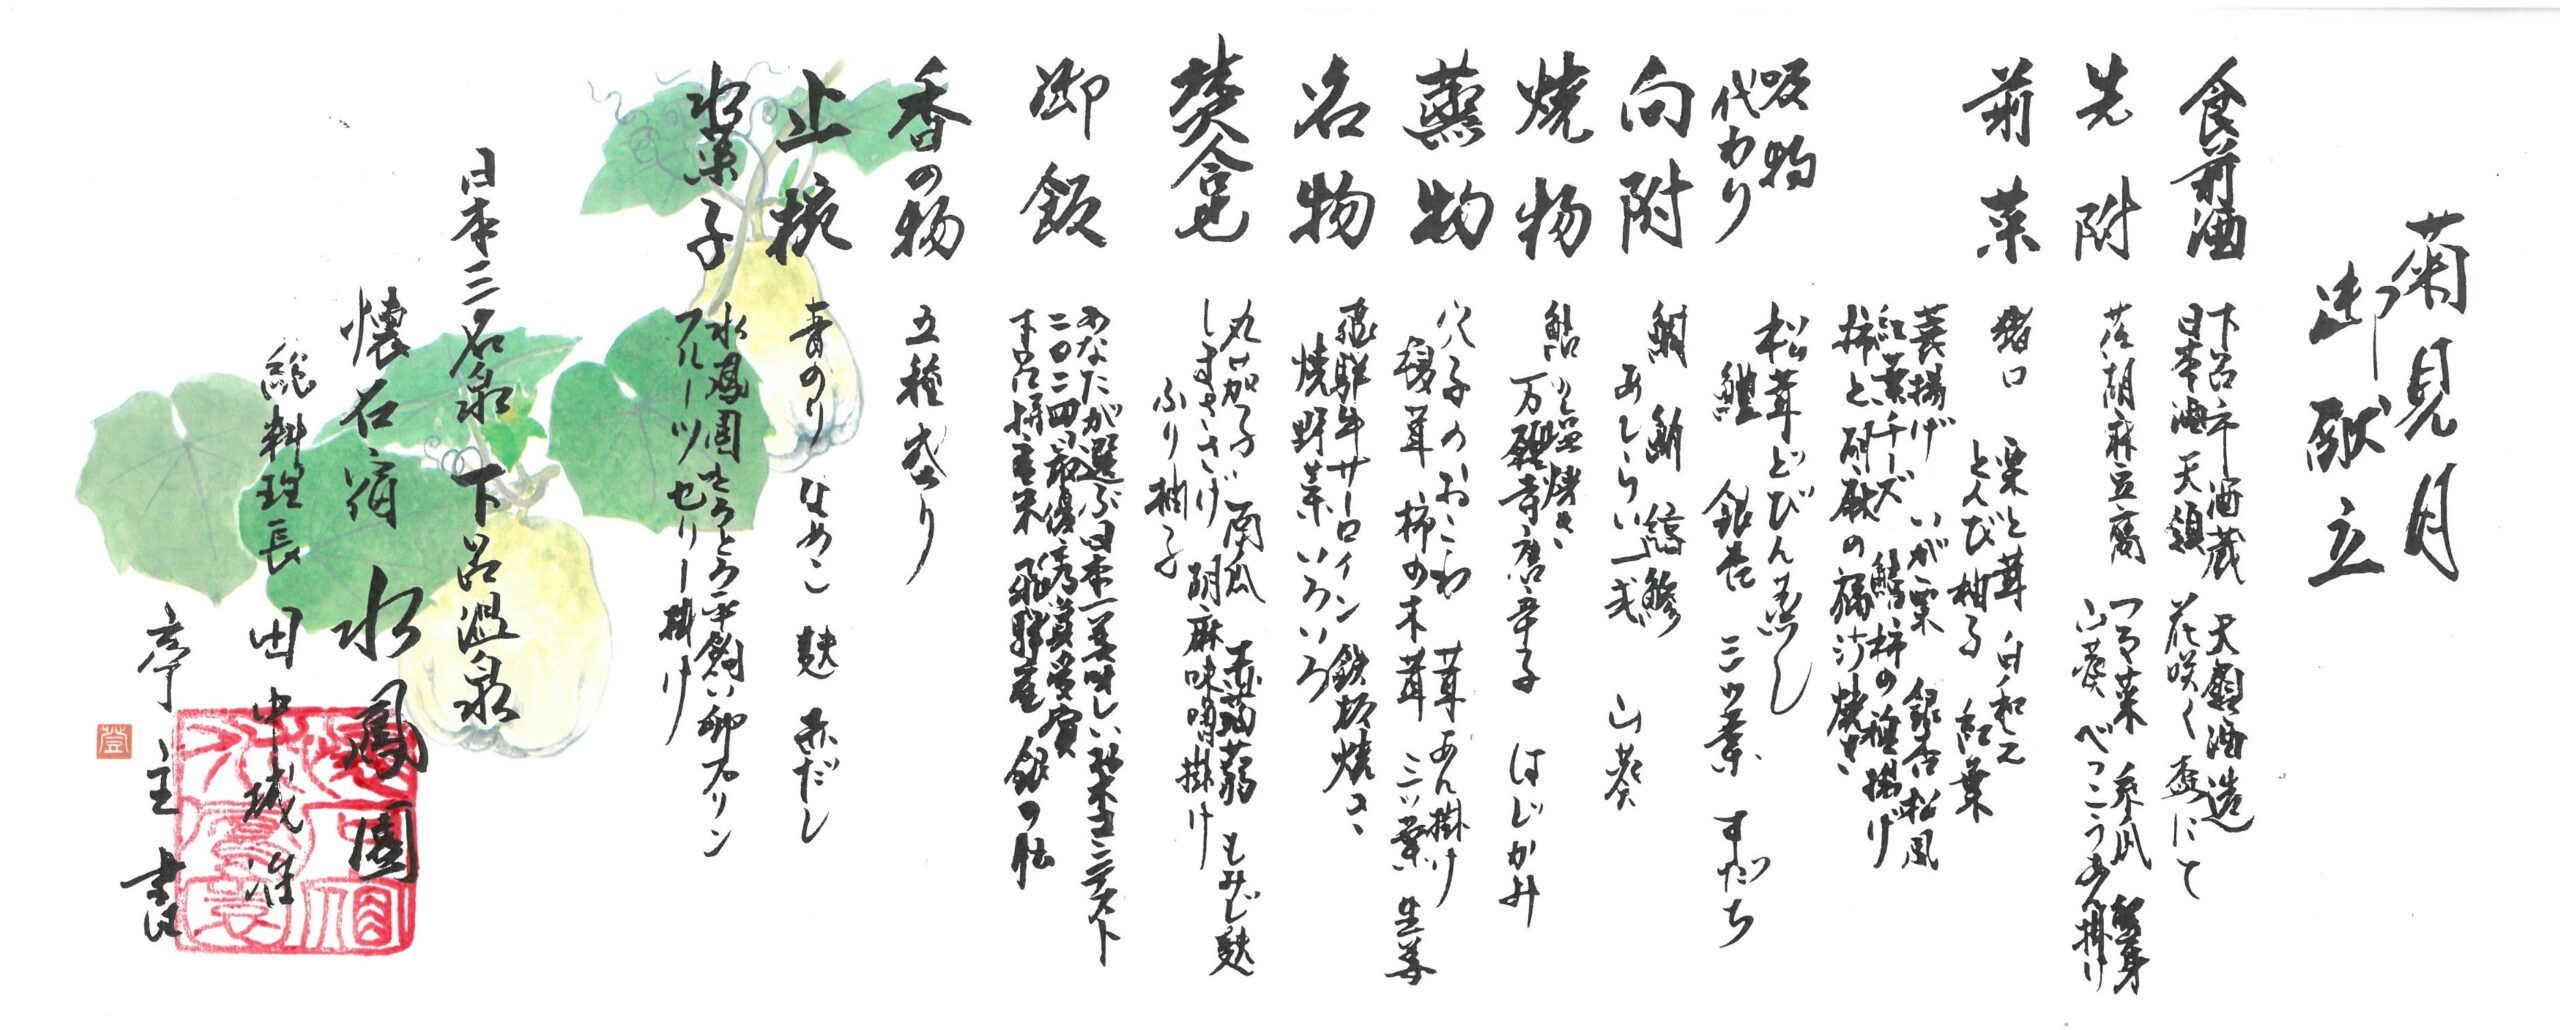 菊見月
御献立
食前酒
下呂市酒蔵 天領酒造
日本酒 天領 花咲く盃にて
先附
落胡麻豆腐 つる菜 糸瓜 蟹身
山葵 べっこうあん掛け
前菜
猪口 栗と茸白和え
とんび柚子 紅葉
蓑揚げ いが栗 銀杏松風
紅葉チーズ 鱚柿の種揚げ
柿と胡瓜の
吸物
代わり
松茸どびん蒸し
鱧 銀杏 三ッ葉 すだち
向附
鮪 山葵
あしらい一式
焼物
鮎の塩焼き はじかみ
万願寺唐辛子
蒸物
穴子のおこわ 茸あん掛け
椎茸 柿の木茸 三ッ葉 生姜
名物
飛騨牛サーロイン鉄板焼き
焼野菜いろいろ
焚合せ
丸茄子 南瓜 赤蒟蒻 もみじ麩
しすささげ 胡麻味噌掛け
ふり柚子
御飯
あなたが選ぶ日本一美味しい米コンテスト
二〇二四 最優秀賞受賞
下呂産 飛騨産 銀の朏
香の物
五種盛り
止椀
青のり なめこ 麩 赤だし
水菓子
水鳳園とろとろ平飼い卵プリン
フルーツゼリー掛け
日本三名泉 下呂温泉
懐石宿 水鳳園
総料理長 田中
亭主 書